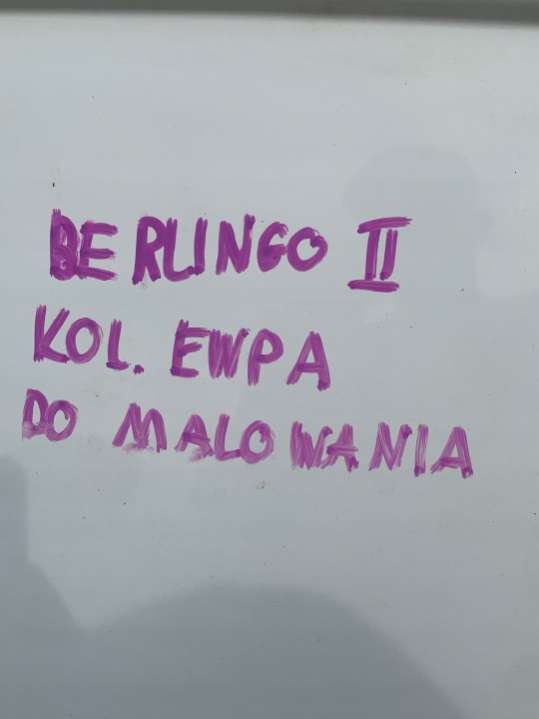 BERLINGO II
KOL. EWPA
DO MALOWANIA